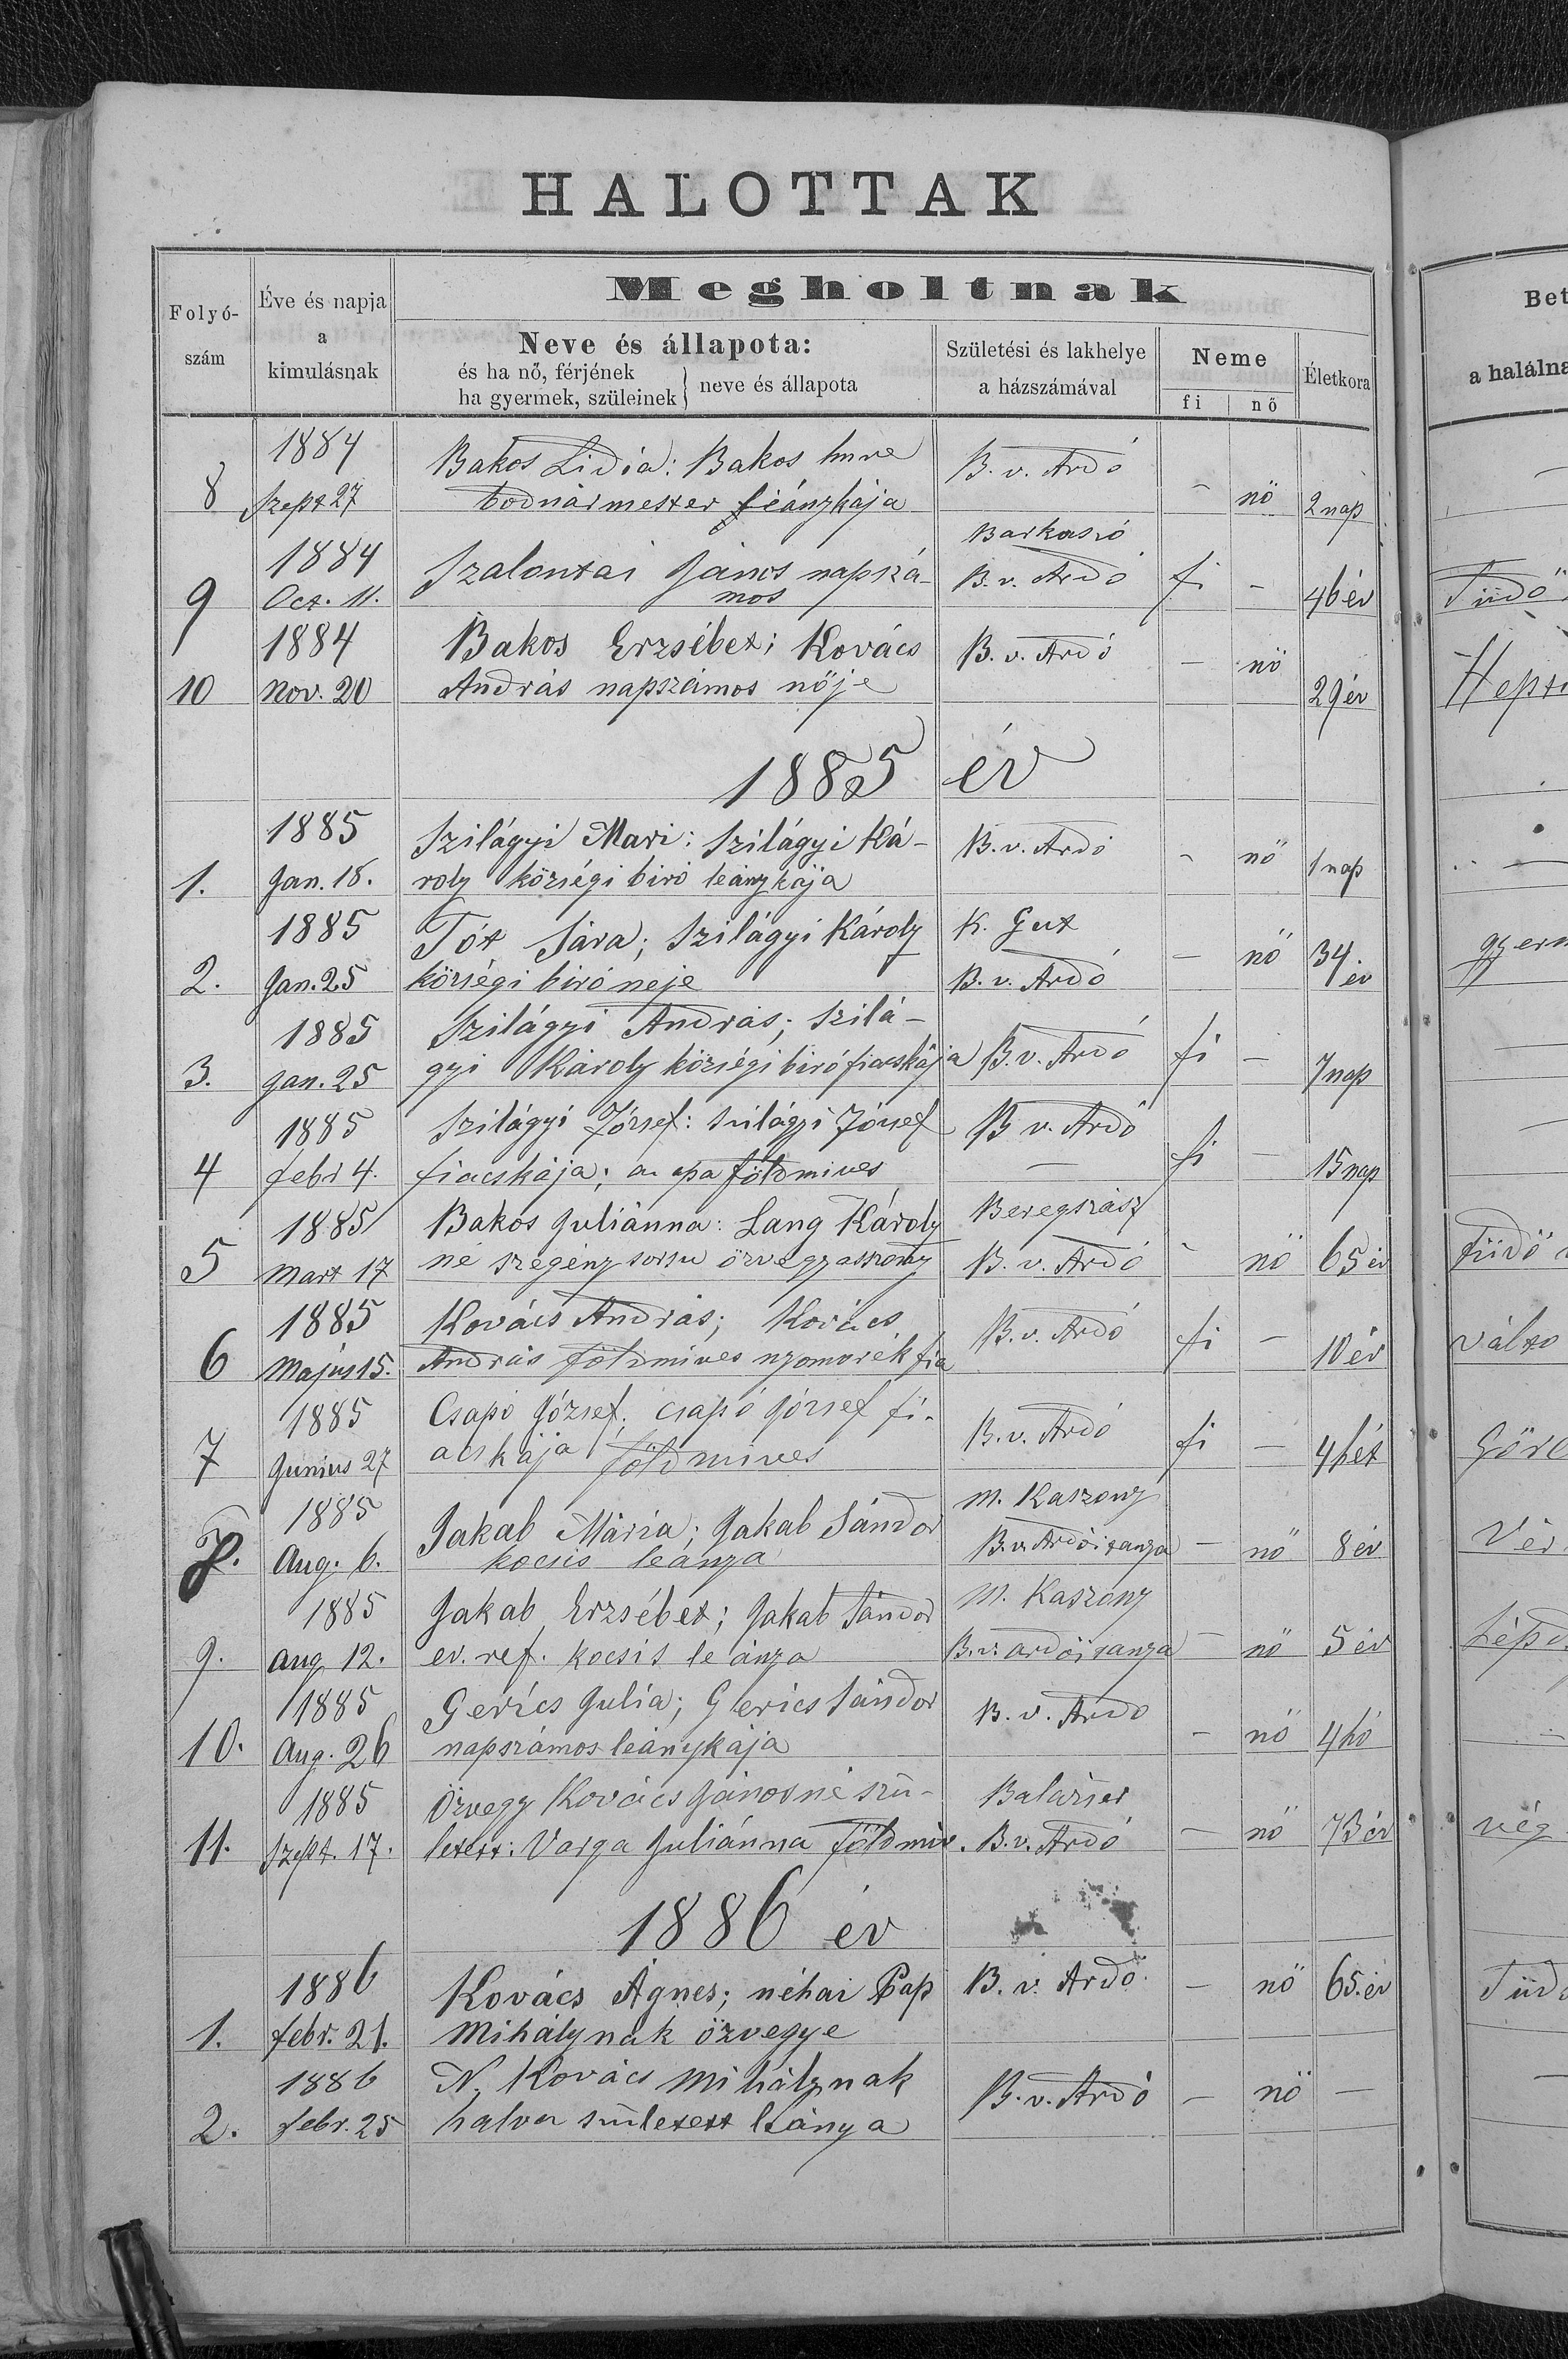 HALOTTAK
Folyó-
szám
Éve és napja
a
kimulásnak
Megholtnak
Neve és állapota:
és ha nő, férjének
ha gyermek, szüleinek
neve és állapota
Születési és lakhelye
a házszámával
Neme
fi
nő
Életkora
Bet
a halálna
1884
Bakos Lidia: Bakos Imre
B. v. Ardó
8 Szept 27 bodnármester leánykája - nö 2 nap
Barkaszó
1884
Szalontai János napszá-
B. v. Ardó
fi -
9 Oct. 11. mos 46 év Tüdő
1884
Bakos Erzsébet; Kovács
B. v. Ardó
- nö
10 Nov. 20 András napszámos nöje 29 év
1885 év
1885
Szilágyi Mari: Szilágyi Ká-
B. v. Ardó
- nö 1 nap
1. Jan. 18. roly községi biró leánykája
1885
Tót Sára; Szilágyi Károly
K. Gut
- nö 34. év
2. Jan. 25 községi biró neje B. v. Ardó
1885
Szilágyi András; Szilá-
3. Jan. 25 gyi Károly községi biró fiacskája B. v. Ardó fi - 7 nap
1885
Szilágyi József: Szilágyi József
B. v. Ardó
4 febr 4. fiacskája; az apa földmives - fi - 15 nap
1885
Bakos Juliánna: Lang Károly
Beregszász
5 Mart 17 né szegény sorsu özvegyasszony B. v. Ardó - nö 65 év Tüdő
1885
Kovács András; Kovács
B. v. Ardó
fi - 10 év
6 Május 15. András földmives nyomorék fia váltó
1885
Csapó József; Csapó József fi-
B. v. Ardó
fi - 4 hét
7 Junius 27 acskája földmives Görc
1885
Jakab Mária; Jakab Sándor
M. Kaszony
8. Aug. 6. kocsis leánya B. v. Ardói tanya - nö 8 év Vér
1885
Jakab Erzsébet; Jakab Sándor
M. Kaszony
9. Aug 12. ev. ref. kocsis leánya B. v. ardói tanya - nö 5 év
1885
Gerics Julia; Gerics Sándor
B. v. Ardo
10. Aug. 26 napszámos leánykája - nö 4 hó
1885
Özvegy Kovács Jánosné szü-
Balazsér
11. Szept. 17. letett: Varga Juliánna földmiv. B. v. Ardó - nö 73 év vég
1886 év
1886
Kovács Ágnes; néhai Pap
B. v. Ardo.
- nö 65. év
1. febr. 21. Mihálynak özvegye
1886
N. Kovács Mihálynak
B. v. Ardó
- nö -
2. febr. 25 halva született leánya